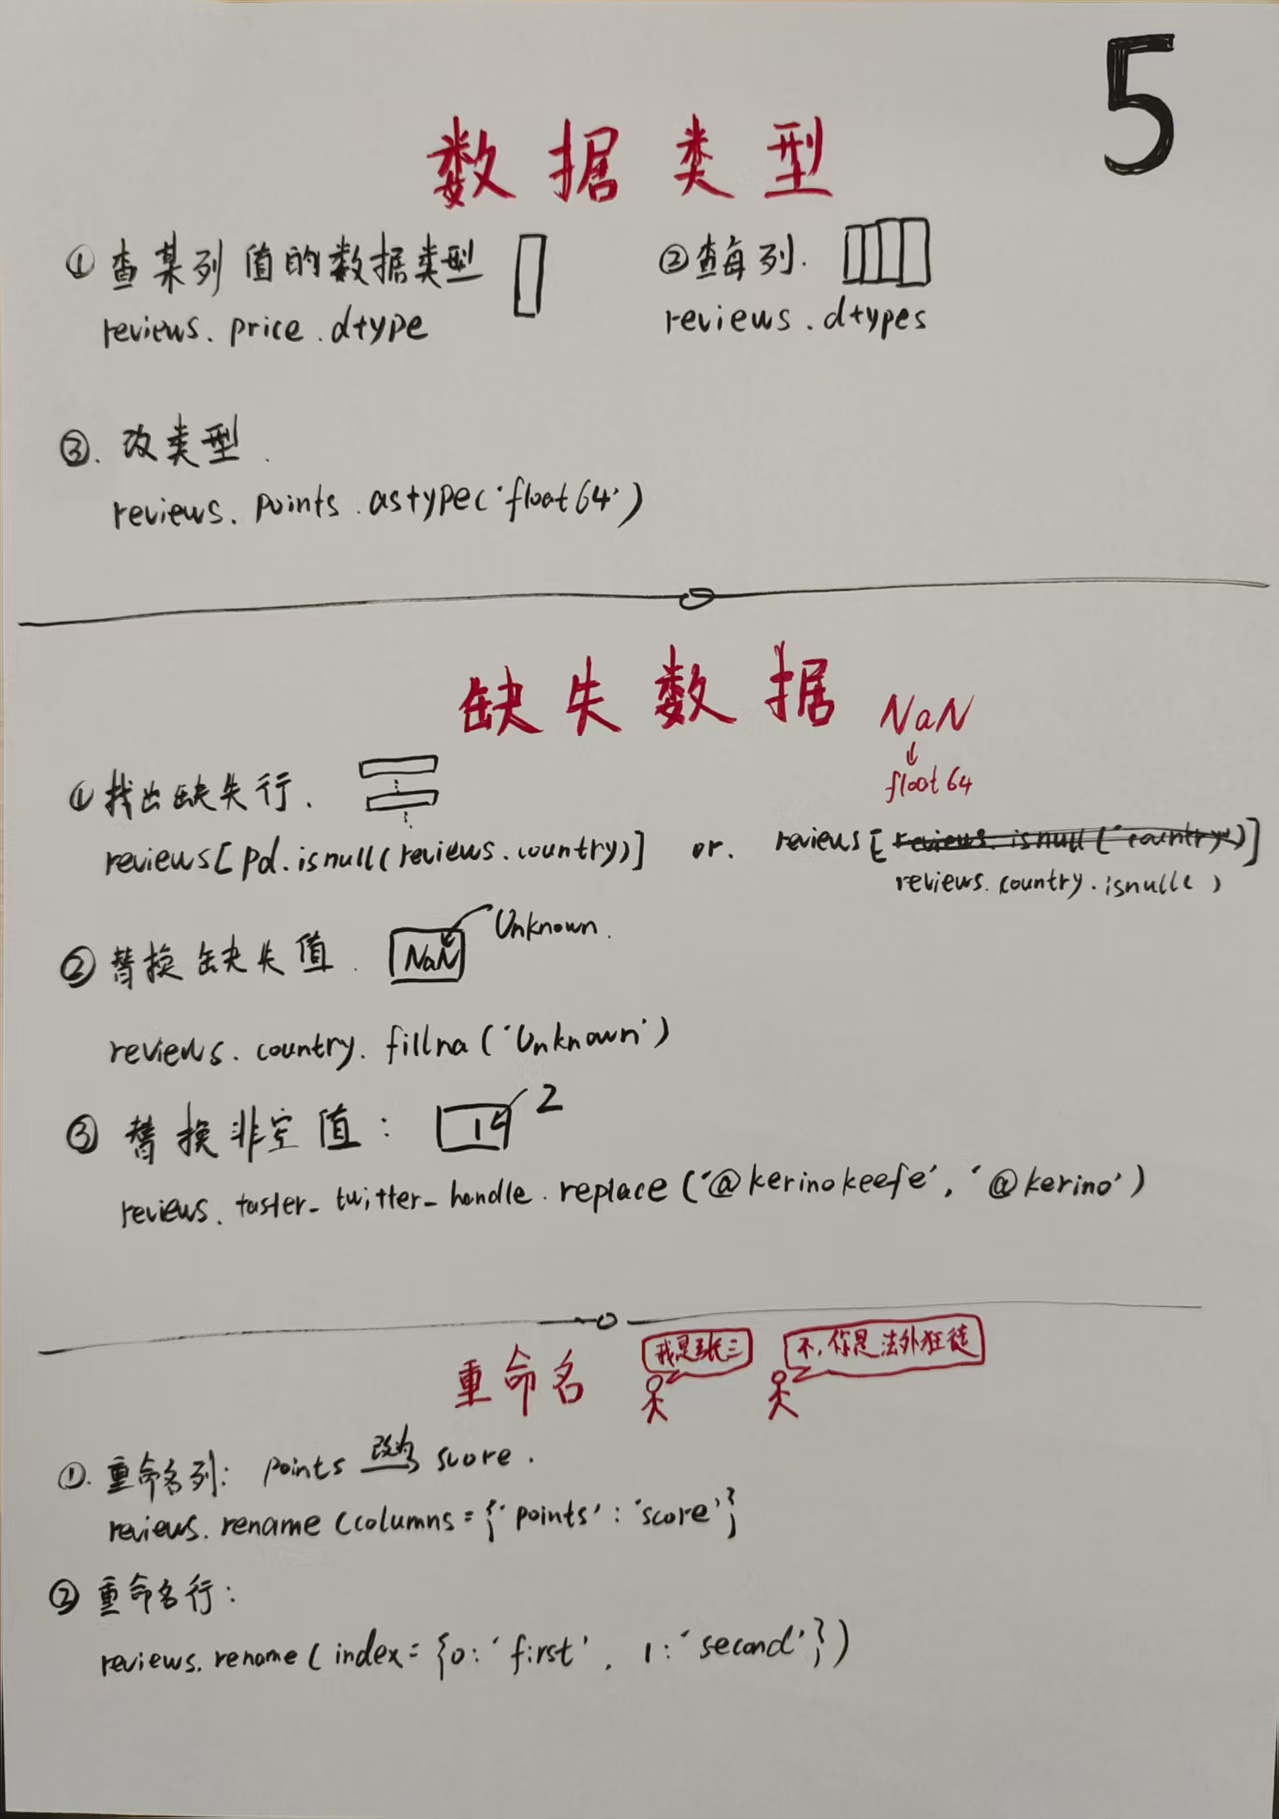 5
数据类型
① 查某列值的数据类型
reviews.price.dtype
② 查每列.
reviews.dtypes
③. 改类型.
reviews.points.astype('float64')
缺失数据 NaN
↓
float64
① 找出缺失行.
reviews[pd.isnull(reviews.country)] or. reviews[reviews.isnull('country')]
reviews.country.isnull( )
② 替换缺失值. NaN Unknown.
reviews.country.fillna('Unknown')
③ 替换非空值: 1 2
reviews.taster_twitter_handle.replace('@kerinokeefe', '@kerino')
重命名 我是张三 不,你是法外狂徒
①. 重命名列: points 改为 score.
reviews.rename(columns={'points':'score'}
② 重命名行:
reviews.rename(index={0:'first', 1:'second'})